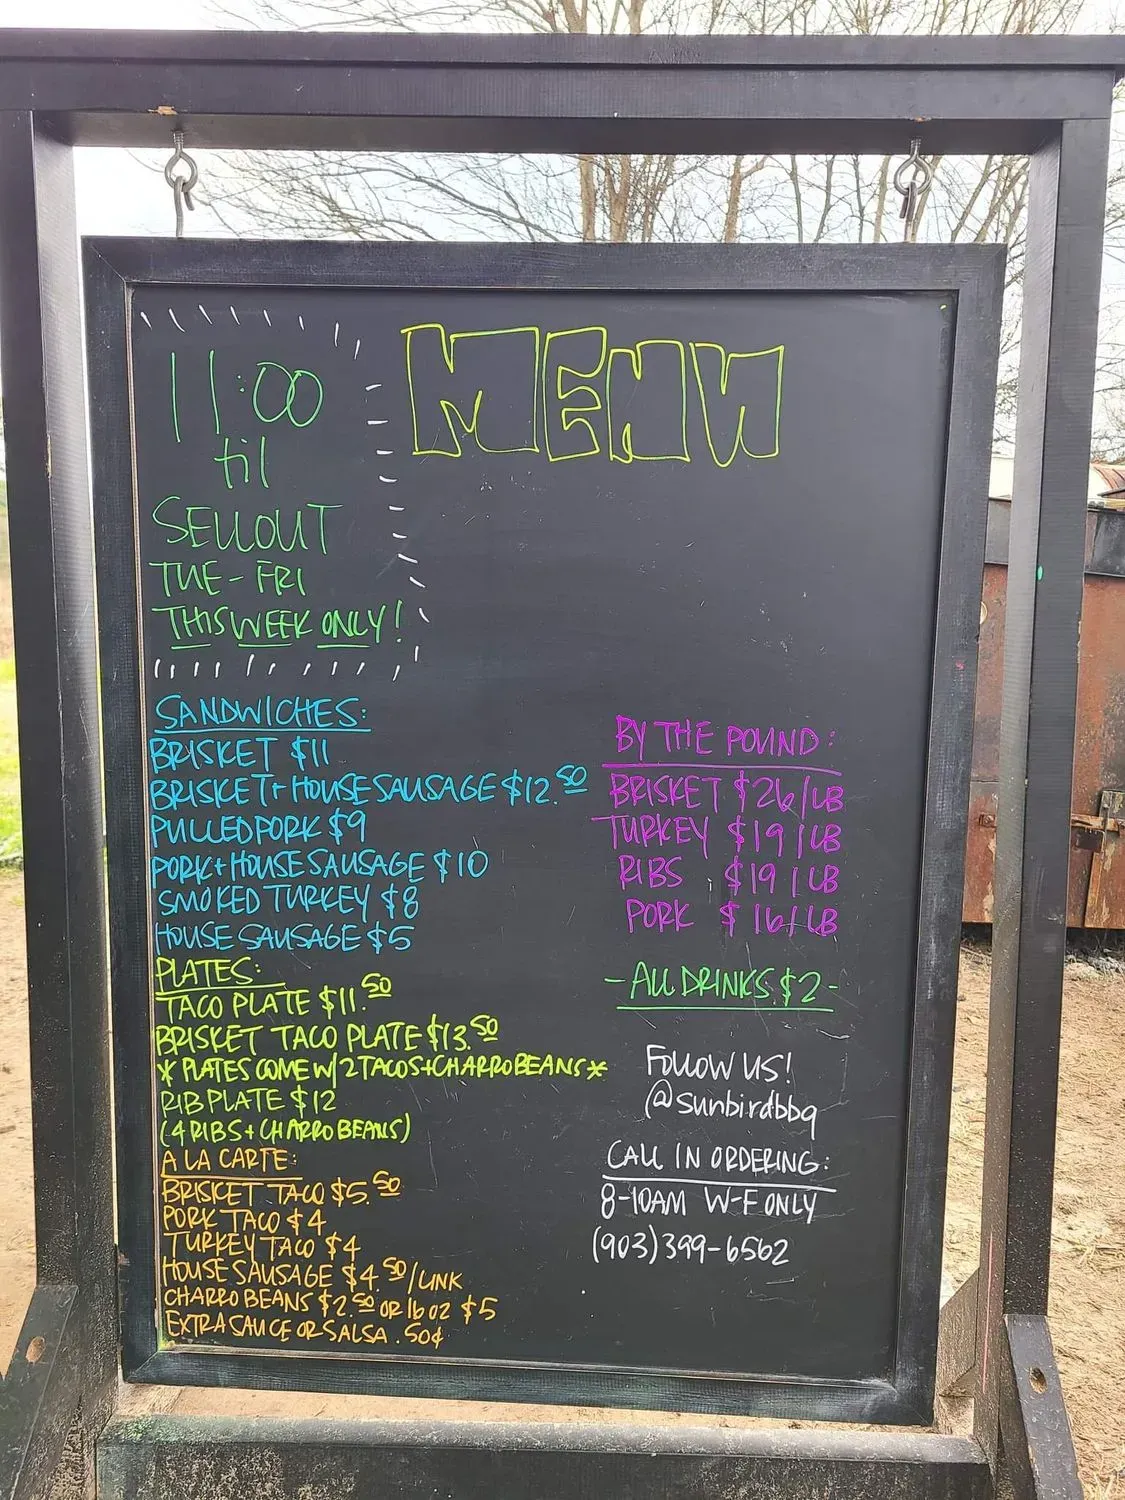 MENU
11:00
til
SELLOUT
TUE-FRI
THIS WEEK ONLY!
SANDWICHES:
BRISKET $11
BRISKET + HOUSE SAUSAGE $12.50
PULLED PORK $9
PORK + HOUSE SAUSAGE $10
SMOKED TURKEY $8
HOUSE SAUSAGE $5
PLATES:
TACO PLATE $11.50
BRISKET TACO PLATE $13.50
* PLATES COME W/ 2 TACOS + CHARRO BEANS *
RIB PLATE $12
(4 RIBS + CHARRO BEANS)
A LA CARTE:
BRISKET TACO $5.50
PORK TACO $4
TURKEY TACO $4
HOUSE SAUSAGE $4.50/LINK
CHARRO BEANS $2.50 OR 16 OZ $5
EXTRA SAUCE OR SALSA .50¢
BY THE POUND:
BRISKET $26/LB
TURKEY $19/LB
RIBS $19/LB
PORK $16/LB
-ALL DRINKS $2-
FOLLOW US!
@sunbirdbbq
CALL IN ORDERING:
8-10AM W-F ONLY
(903)399-6562